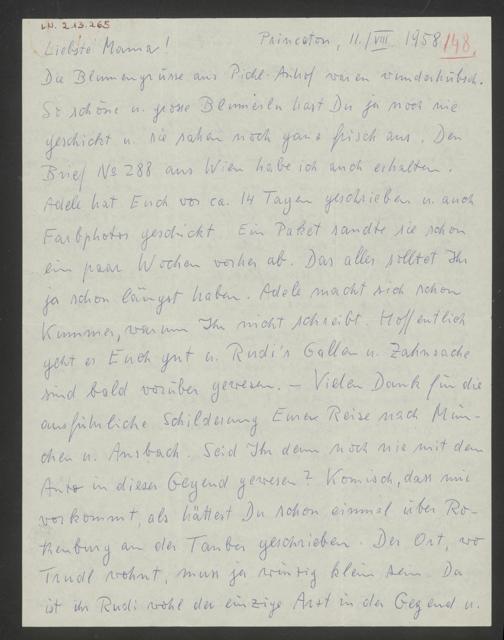 I.N. 213.265
Princeton, 11./VIII. 1958
148.
Liebste Mama!
Die Blumengrüsse aus Pichl-Auhof waren wunderhübsch.
So schöne u. grosse Blumerln hast Du ja noch nie
geschickt u. sie sahen noch ganz frisch aus. Den
Brief No 288 aus Wien habe ich auch erhalten.
Adele hat Euch vor ca. 14 Tagen geschrieben u. auch
Farbphotos geschickt. Ein Paket sandte sie schon
ein paar Wochen vorher ab. Das alles solltet Ihr
ja schon längst haben. Adele macht sich schon
Kummer, warum Ihr nicht schreibt. Hoffentlich
geht es Euch gut u. Rudi's Gallen u. Zahnsache
sind bald vorüber gewesen. – Vielen Dank für die
ausführliche Schilderung Eurer Reise nach Mün-
chen u. Ansbach. Seid Ihr denn noch nie mit dem
Auto in dieser Gegend gewesen? Komisch, dass mir
vorkommt, als hättest Du schon einmal über Ro-
thenburg an der Tauber geschrieben. Der Ort, wo
Trudl wohnt, muss ja winzig klein sein. Da
ist ihr Rudi wohl der einzige Arzt in der Gegend u.